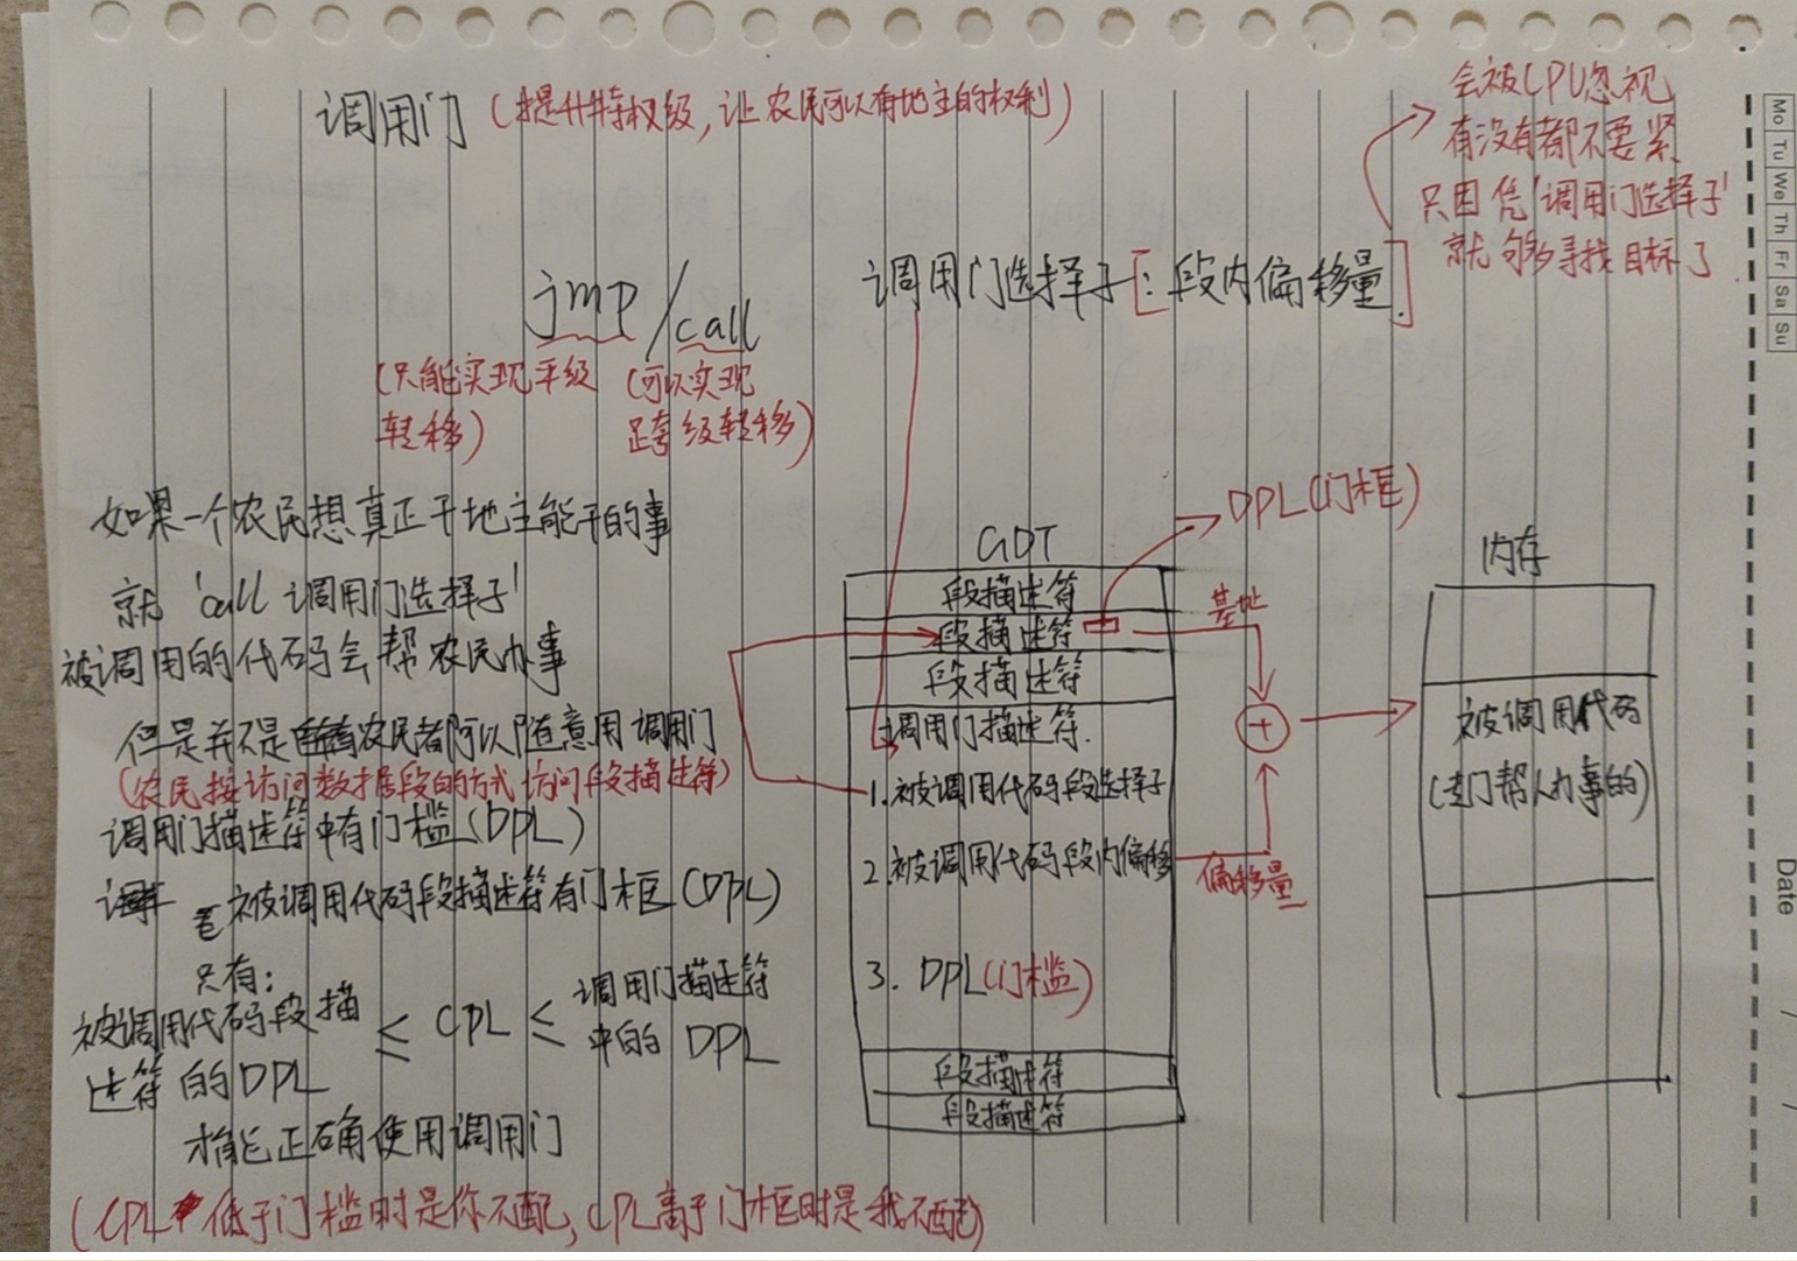 调用门 (提升特权级, 让农民可以有地主的权利)
会被CPU忽视
有没有都不要紧
只因凭'调用门选择子'
就够多寻找目标了
jmp/call 调用门选择子[:段内偏移量]
(只能实现平级
转移)
(可以实现
跨级转移)
如果一个农民想真正干地主能干的事
就 'call 调用门选择子'
被调用的代码会帮农民办事
但是并不是所有农民都可以随意用调用门
(农民按访问数据段的方式访问段描述符)
调用门描述符中有门槛(DPL)
被调用代码段描述符有门框(DPL)
只有:
被调用代码段描
述符的DPL
≤ CPL ≤
调用门描述符
中的 DPL
才能正确使用调用门
(CPL低于门槛时是你不配, CPL高于门框时是我不配)
GDT
DPL(门框)
段描述符
段描述符
段描述符
调用门描述符.
1.被调用代码段选择子
2.被调用代码段内偏移
3. DPL(门槛)
段描述符
段描述符
基址
+
偏移量
内存
被调用代码
(专门帮人办事的)
Mo Tu We Th Fr Sa Su
Date / /